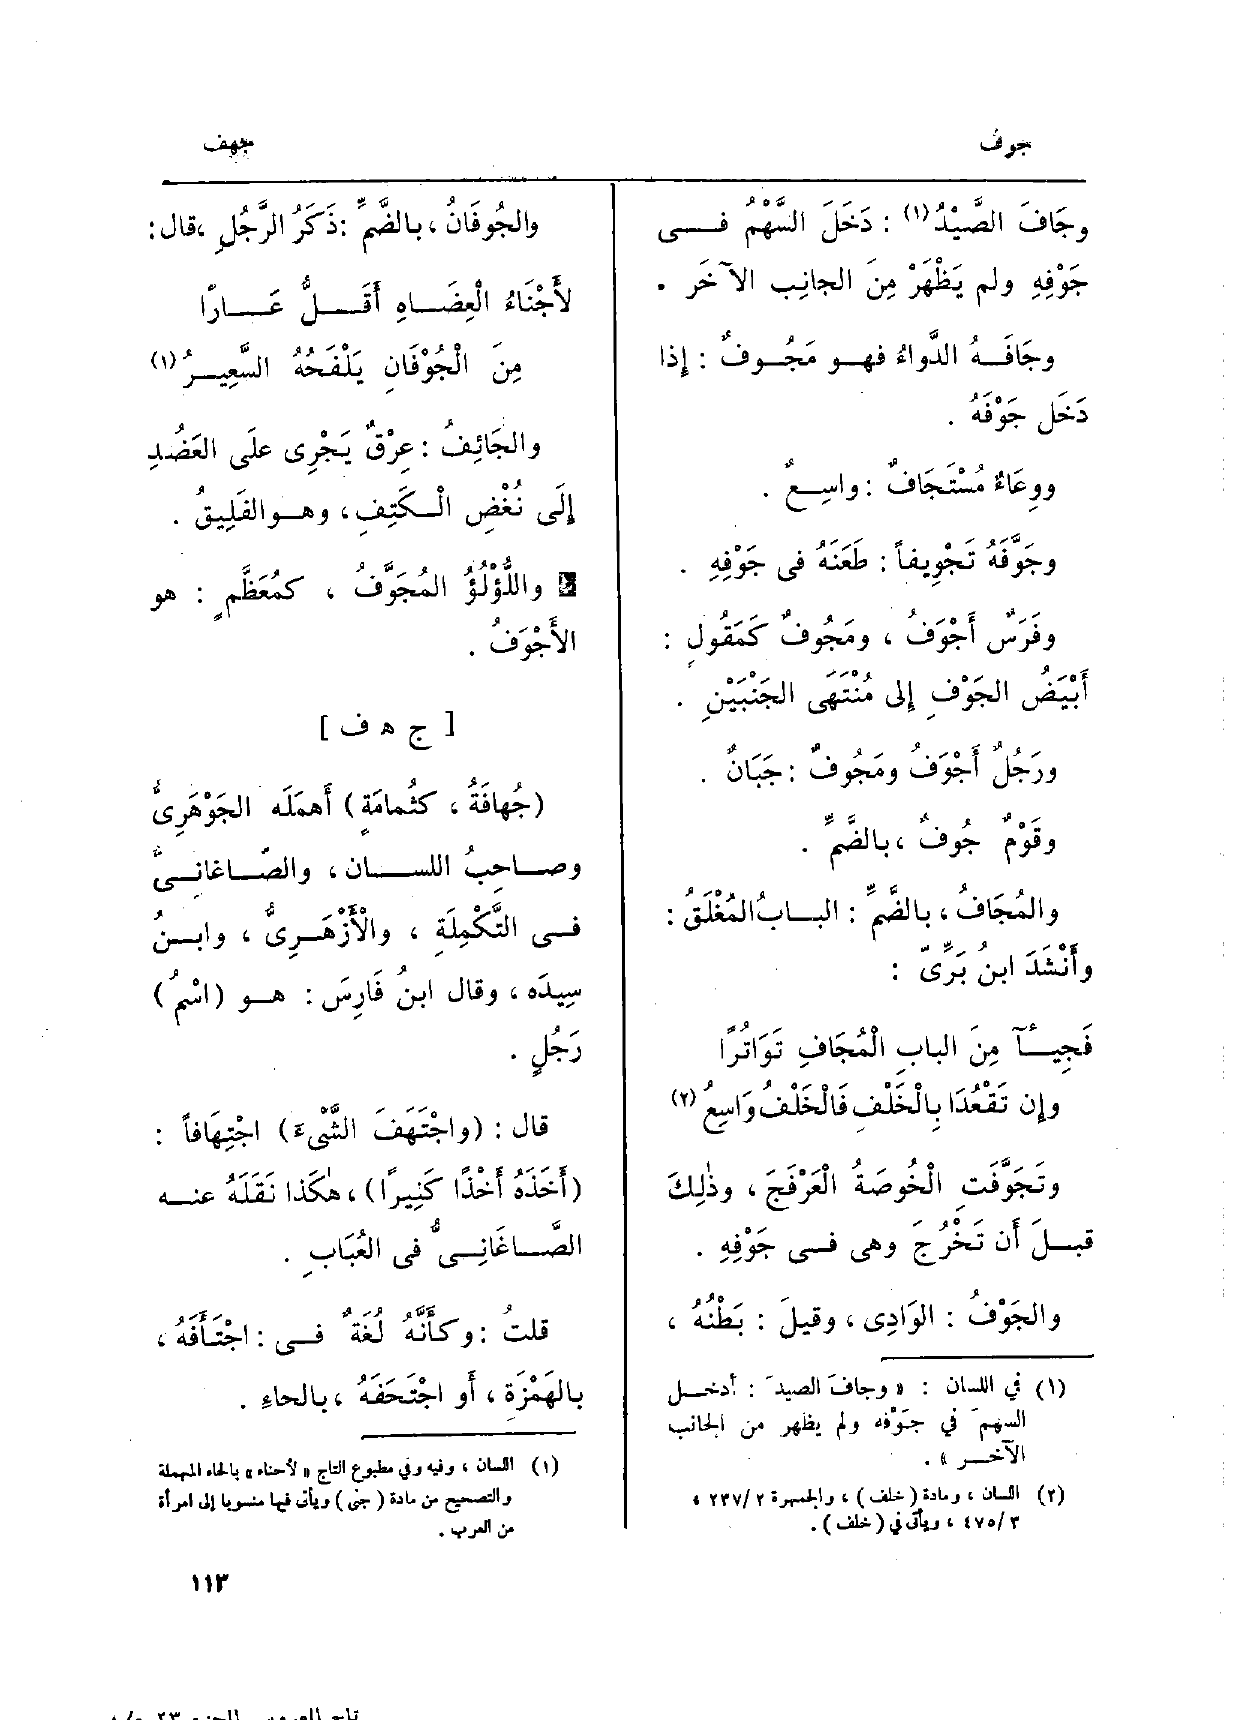 جوف
جهف
وجَافَ الصَّيْدُ(١) : دَخَلَ السَّهْمُ فــى
جَوْفِهِ ولم يَظْهَرْ مِنَ الجانِب الآخَر .
وجَافَــهُ الدَّواءُ فهــو مَجُــوفٌ : إذا
دَخَل جَوْفَهُ .
ووِعَاءٌ مُسْتَجَافٌ : واسِــعٌ .
وجَوَّفَهُ تَجْوِيفاً : طَعَنَهُ فى جَوْفِهِ .
وفَرَسٌ أَجْوَفُ ، ومَجُوفٌ كَمَقُولٍ :
أَبْيَضُ الجَوْفِ إلى مُنْتَهَى الجَنْبَيْنِ .
ورَجُلٌ أَجْوَفُ ومَجُوفٌ : جَبَانٌ .
وقَوْمٌ جُوفٌ ، بالضَّمِّ .
والمُجَافُ ، بالضَّمِّ : البــابُ المُغْلَقُ :
وأَنْشَدَ ابنُ بَرِّىّ :
فَجِيــآ مِنَ البابِ الْمُجَافِ تَوَاتُرًا
وإن تَقْعُدَا بِالْخَلْفِ فَالْخَلْفُ وَاسِعُ (٢)
وتَجَوَّفَتِ الْخُوصَةُ الْعَرْفَجَ ، وذٰلِكَ
قبــلَ أن تَخْرُجَ وهى فــى جَوْفِهِ .
والجَوْفُ : الوَادِى ، وقيلَ : بَطْنُهُ ،
(١) في اللسان : « وجافَ الصيدَ : أدخــل
السهمَ في جَوْفه ولم يظهر من الجانب
الآخــر » .
(٢) اللسان ، ومادة ( خلف ) ، والجمهرة ٢ / ٢٣٧ ،
٣ / ٤٧٥ ، ويأتى في ( خلف ) .
والجُوفَانُ ، بالضَّمِّ : ذَكَرُ الرَّجُلِ ، قال :
لأَجْنَاءُ الْعِضَــاهِ أَقَــلُّ عَــارًا
مِنَ الْجُوْفَانِ يَلْفَحُهُ السَّعِيــرُ (١)
والجَائِفُ : عِرْقٌ يَجْرِى علَى العَضُدِ
إلَى نُغْضِ الْــكَتِفِ ، وهــو الفَلِيقُ .
واللُّؤْلُؤُ المُجَوَّفُ ، كمُعَظَّمٍ : هو
الأَجْوَفُ .
[ ج ه ف ]
( جُهافَةُ ، كثُمامَةٍ ) أَهمَلَه الجَوْهَرِىُّ
وصــاحِبُ اللســان ، والصّــاغانــىُّ
فــى التَّكْمِلَةِ ، والْأَزْهَــرِىُّ ، وابــنُ
سِيدَه ، وقال ابنُ فَارِسَ : هــو ( اسْمُ )
رَجُلٍ .
قال : ( واجْتَهَفَ الشَّىْءَ ) اجْتِهَافاً :
( أَخَذَهُ أَخْذًا كَثِيرًا ) ، هٰكَذا نَقَلَهُ عنــه
الصَّــاغَانِــىُّ فى العُبَابِ .
قلتُ : وكَأَنَّهُ لُغَةٌ فــى : اجْتَأَفَهُ ،
بالهَمْزَةِ ، أو اجْتَحَفَهُ ، بالحاءِ .
(١) اللسان ، وفيه وفي مطبوع التاج « لأحناء » بالحاء المهملة
والتصحيح من مادة ( جنى ) ويأتى فيها منسوبا إلى امرأة
من العرب .
١١٣